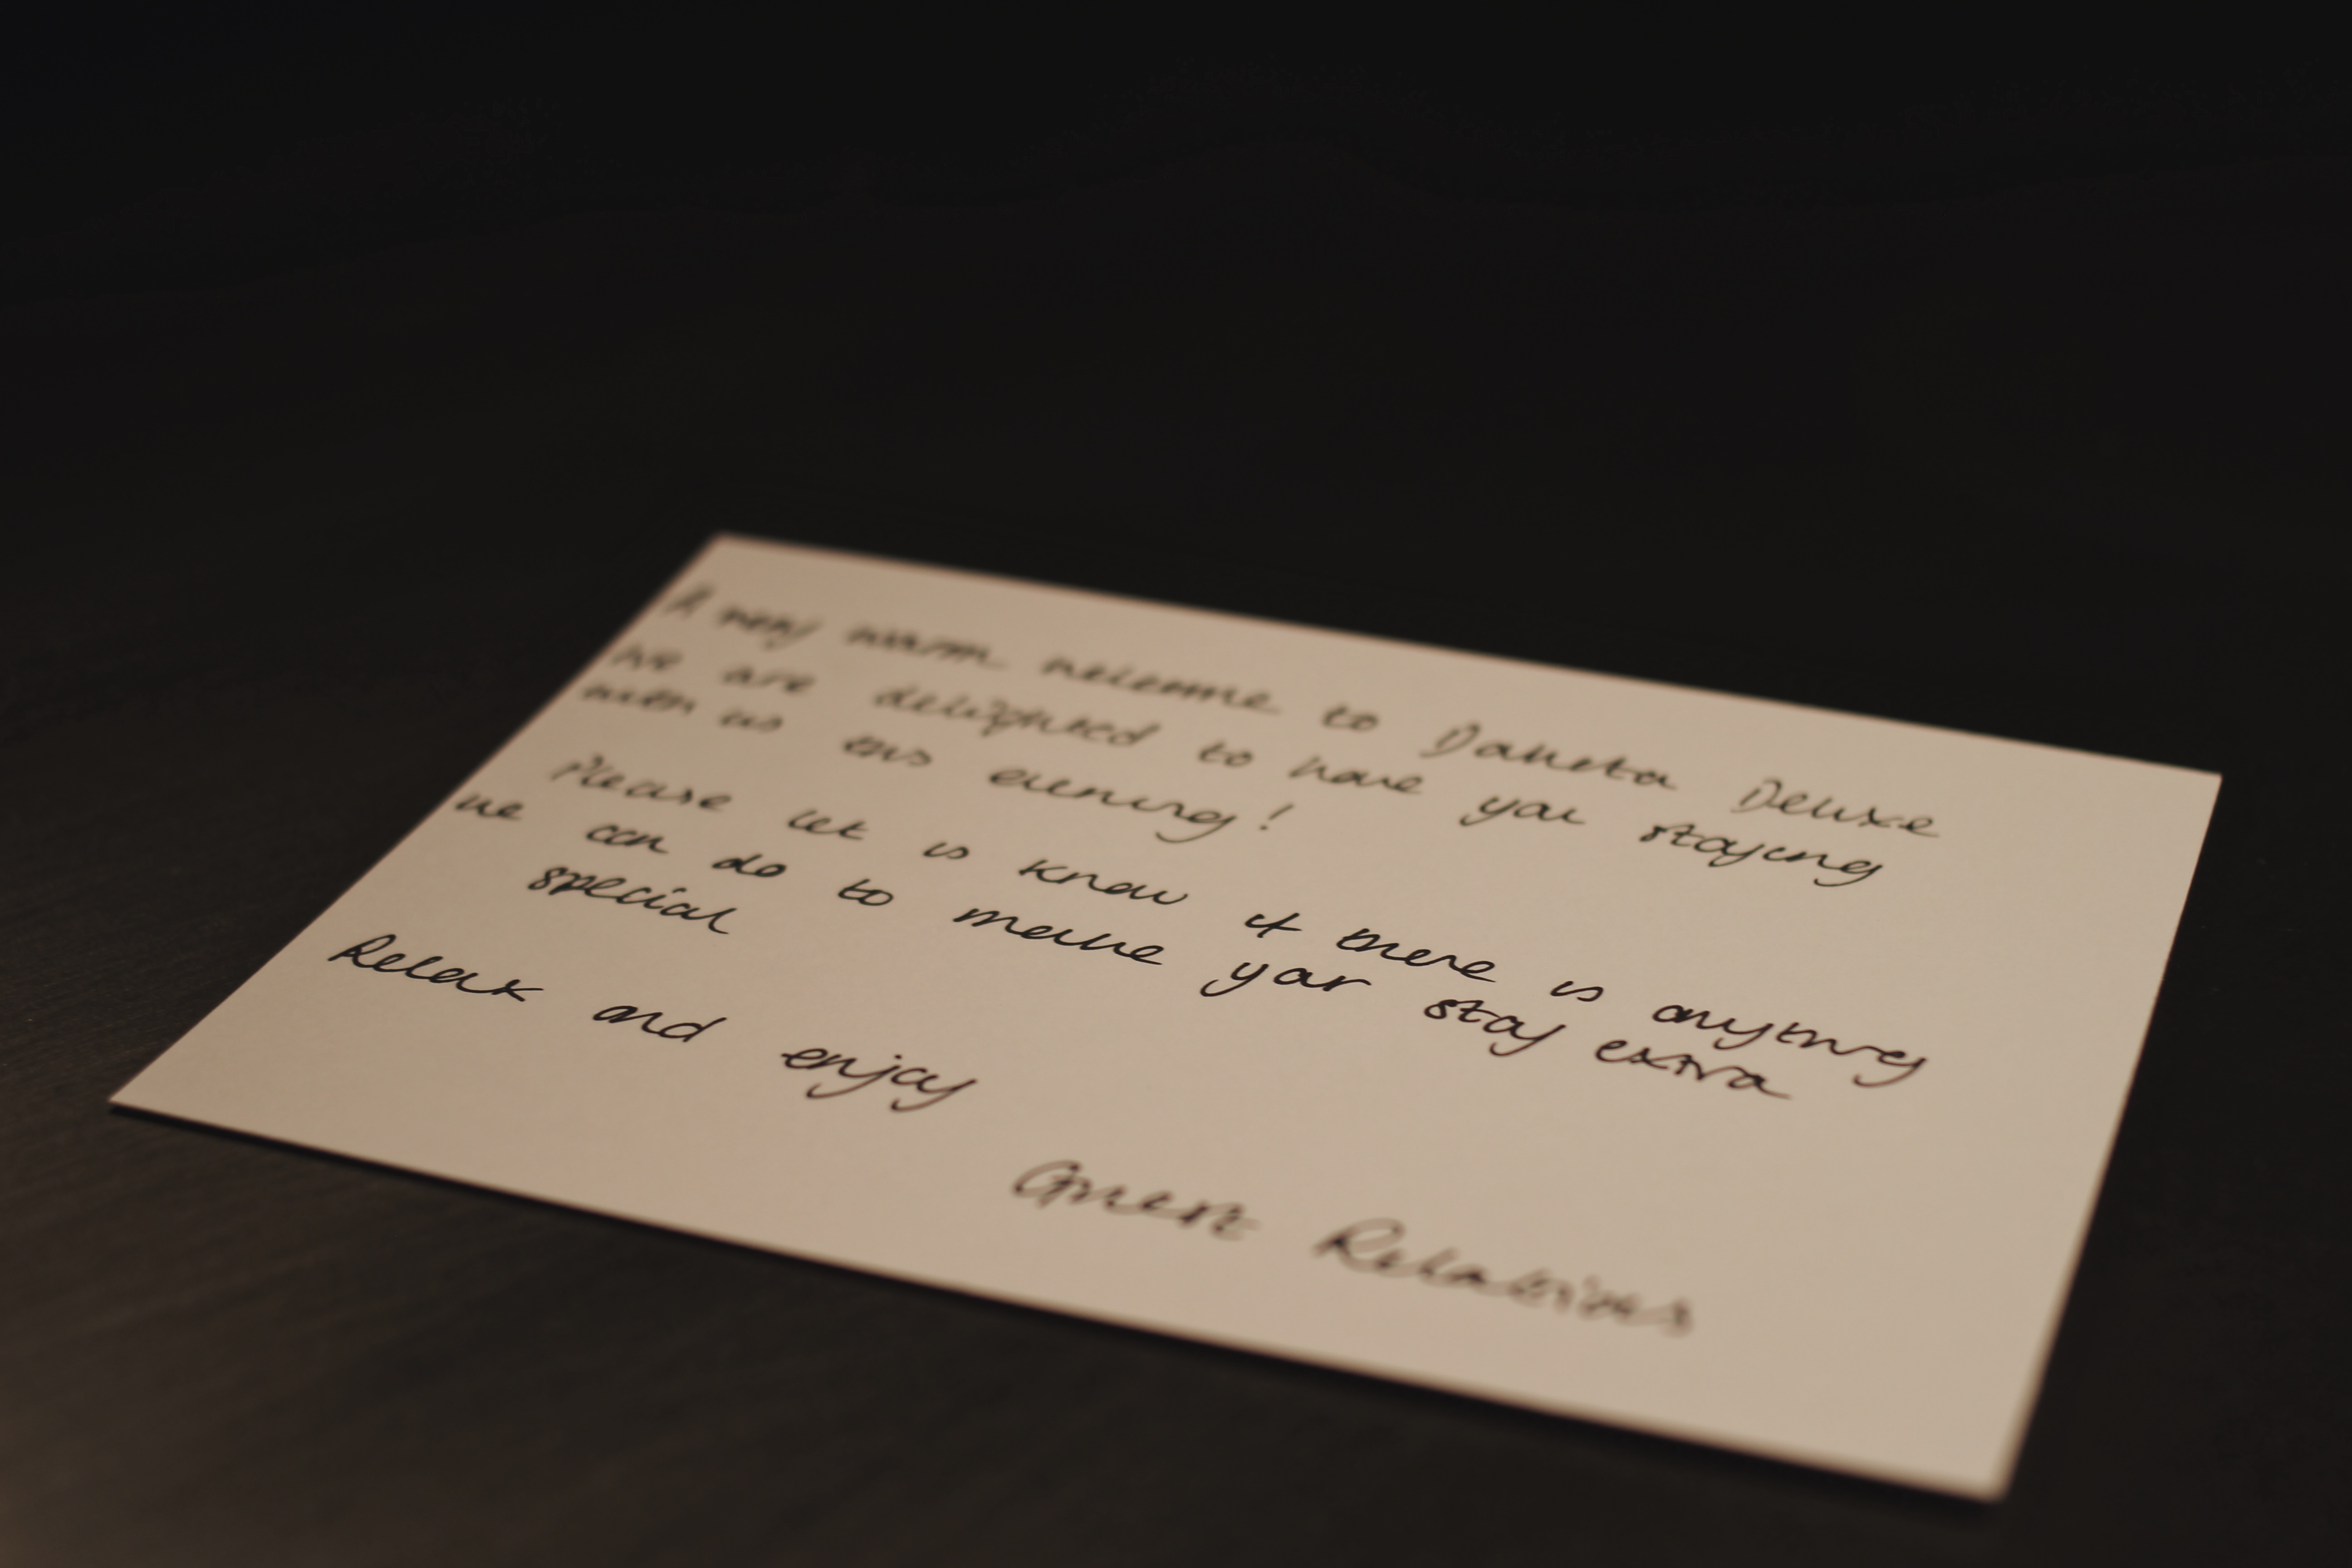 A very warm welcome to Dakota Deluxe
We are delighted to have you staying
with us this evening!
Please let us know if there is anything
we can do to make your stay extra
special
Relax and enjoy
Guest Relations